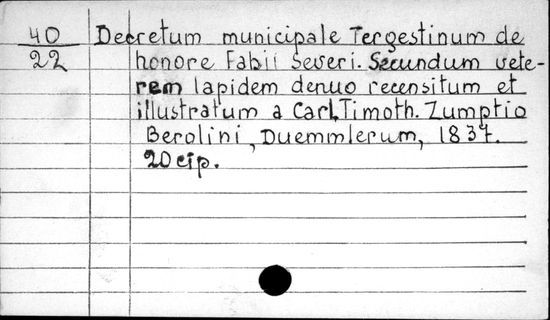 40 Decretum municipale Tergestinum de
22 honore Fabii Severi. Secundum vete-
rem lapidem denuo recensitum et
illustratum a Carl. Timoth. Zumptio
Berolini, Duemmlerum, 1837.
20 cip.